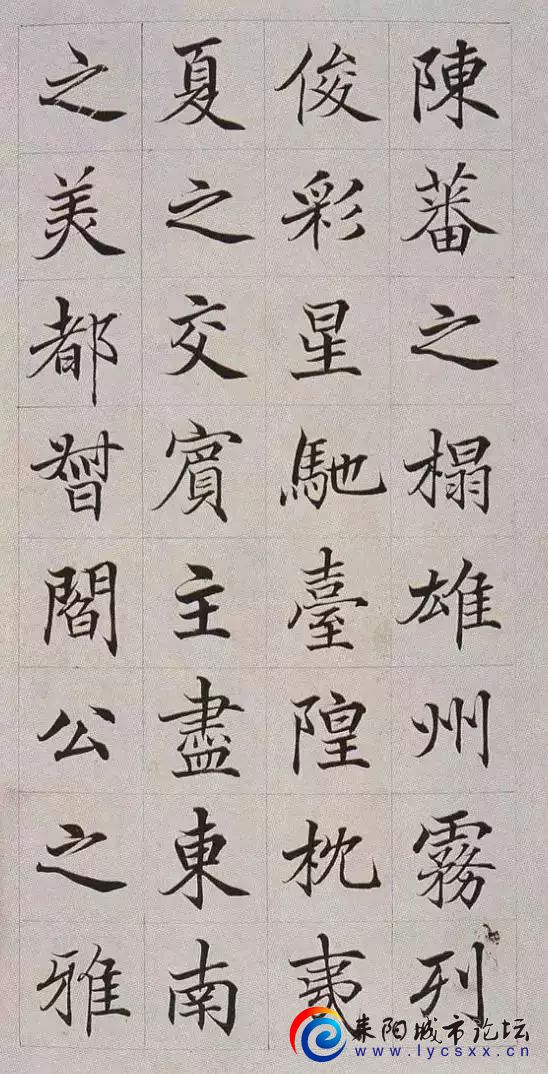 陳蕃之榻雄州霧列
俊彩星馳臺隍枕夷
夏之交賓主盡東南
之美都督閻公之雅
耒阳城市论坛
www.lycsxx.cn